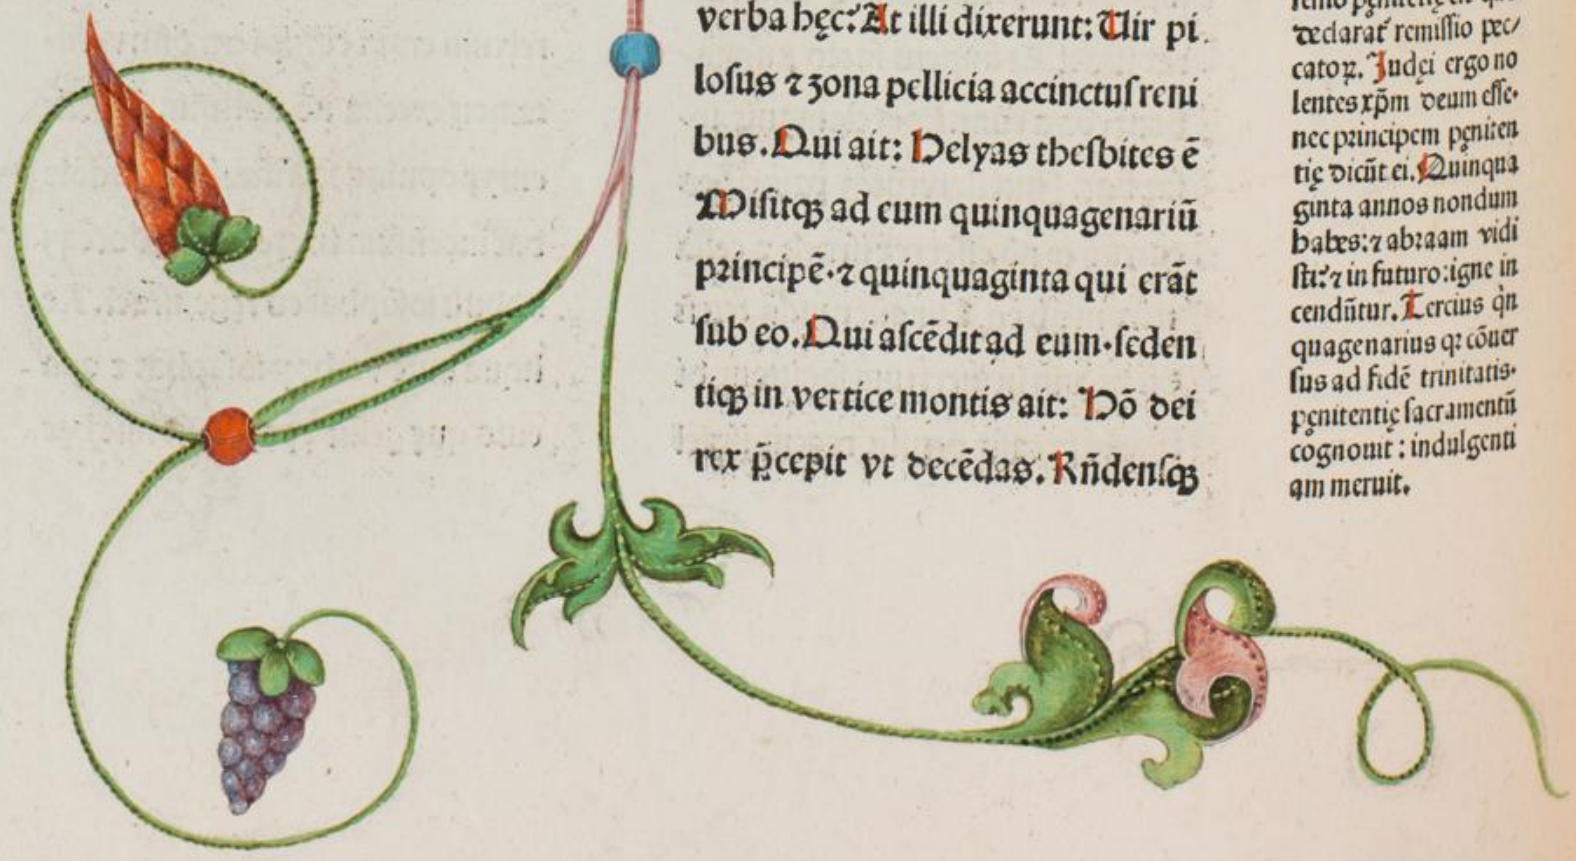 verba hęc? At illi dixerunt: Uir pi
losus ⁊ zona pellicia accinctus reni
bus. Qui ait: Helyas thesbites ē
Misitqꝫ ad eum quinquagenariū
principē· ⁊ quinquaginta qui erāt
sub eo. Qui ascēdit ad eum· seden
tiqꝫ in vertice montis ait: Hō dei
rex p̄cepit vt decēdas. Rn̄densqꝫ
declarat᷑ remissio pec/
catoꝝ. Iudęi ergo no
lentes xp̄m deum esse·
nec principem pęniten
tię dicūt ei. Quinqua
ginta annos nondum
habes: ⁊ abraam vidi
sti? ⁊ in futuro: igne in
cendūtur. Tercius qͥn
quagenarius qꝛ cōuer
sus ad fidē trinitatis·
pęnitentię sacramentū
cognouit: indulgenti
am meruit.